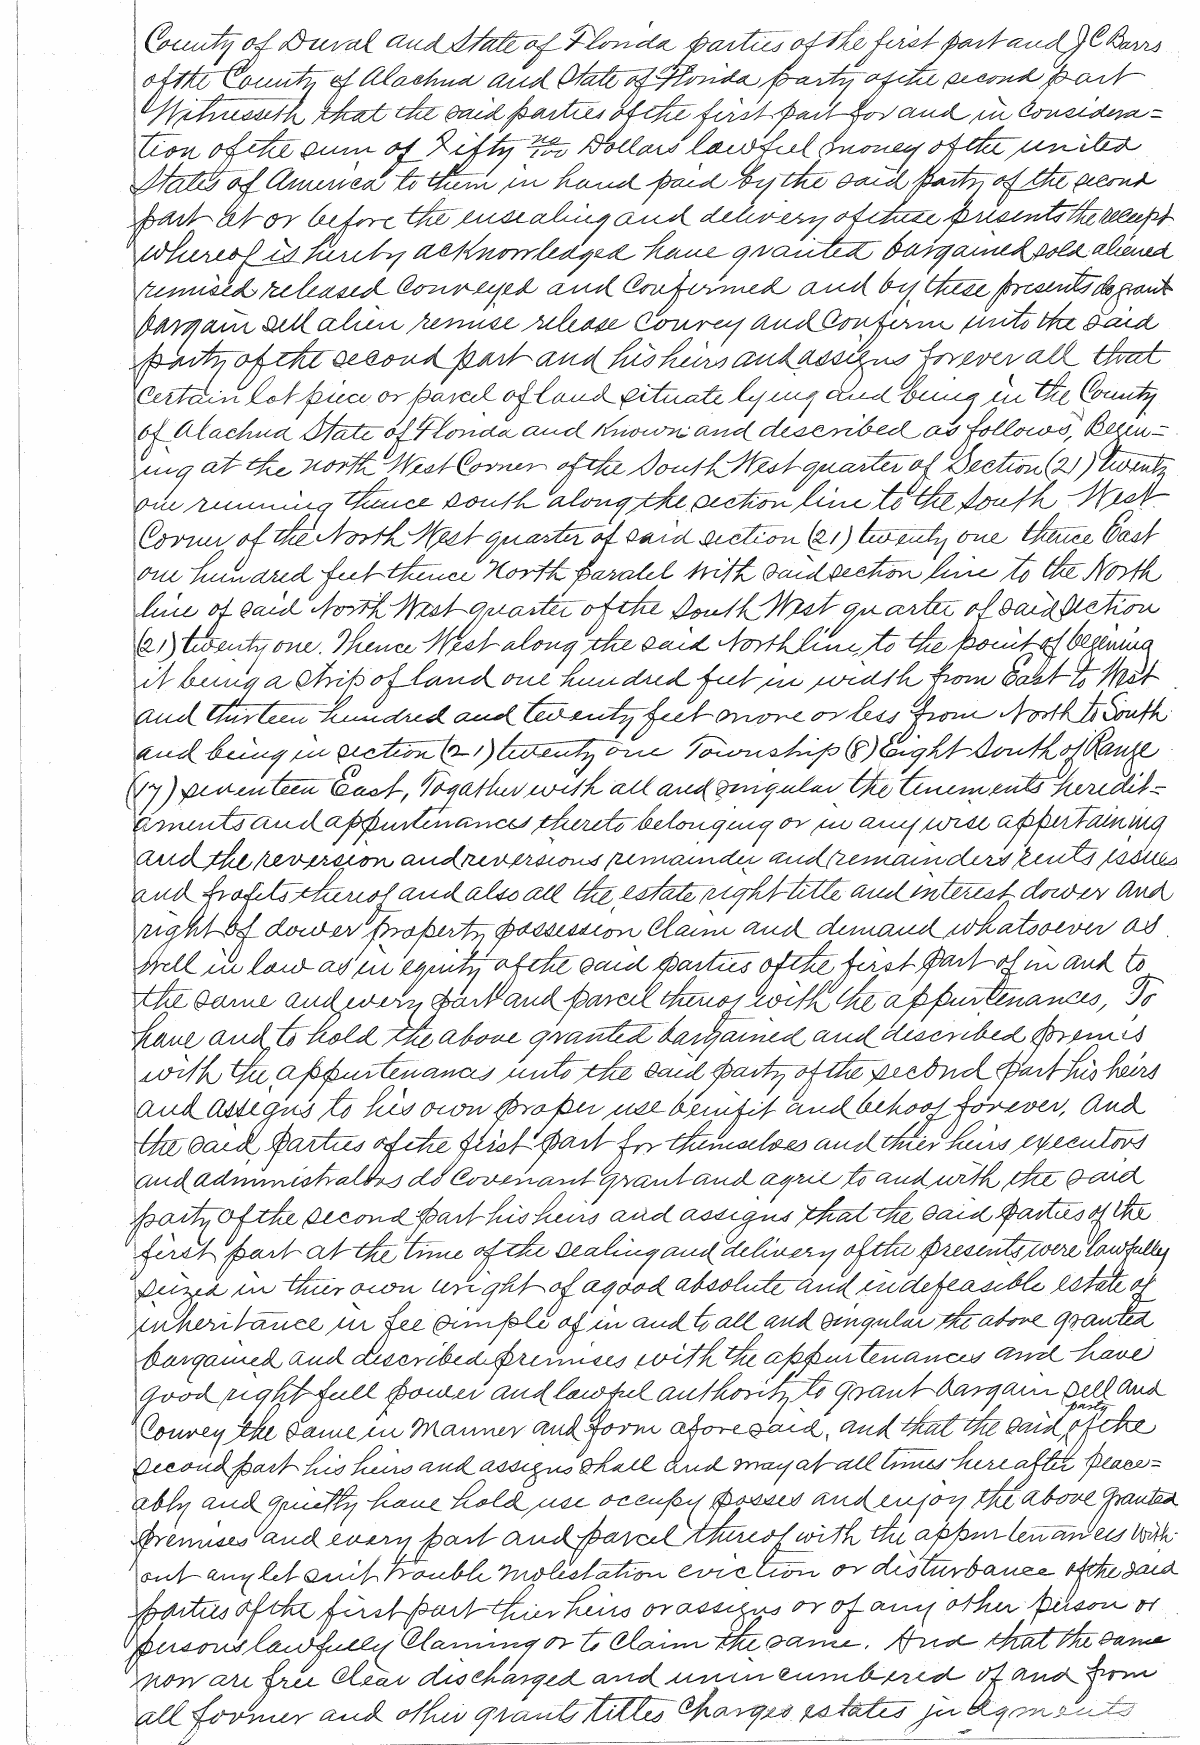 County of Duval and State of Florida parties of the first part and J C Barrs
of the County of Alachua and State of Florida party of the second part
Witnesseth that the said parties of the first part for and in considera=
tion of the sum of Fifty no/100 Dollars lawful money of the united
States of America to them in hand paid by the said party of the second
part at or before the ensealing and delivery of these presents the receipt
whereof is hereby acknowledged have granted bargained sold aliened
remised released Conveyed and Confirmed and by these presents do grant
bargain sell alien remise release Convey and Confirm unto the said
party of the second part and his heirs and assigns forever all that
Certain lot piece or parcel of land situate lying and being in the County
of Alachua State of Florida and Known and described as follows, Begin=
ing at the north West Corner of the South West quarter of Section (21) twenty
one running thence south along the section line to the South West
Corner of the North West quarter of said section (21) twenty one thence East
one hundred feet thence North paralel with said section line to the North
line of said North West quarter of the South West quarter of said Section
(21) twenty one. Thence West along the said North line, to the point of begining
it being a strip of land one hundred feet in width from East to West
and thirteen hundred and twenty feet more or less from North to South
and being in section (21) twenty one Township (8) Eight South of Range
(17) seventeen East, Togather with all and singular the tenements heredit=
aments and appurtenances thereto belonging or in any wise appertaining
and the reversion and reversions remainder and remainders rents issues
and profits thereof and also all the estate right title and interest dower and
right of dower property possession Claim and demand whatsoever as
well in law as in equity of the said parties of the first part of in and to
the same and every part and parcel thereof with the appurtenances, To
have and to hold the above granted bargained and described premis
with the appurtenances unto the said party of the second part his heirs
and assigns to his own proper use benifit and behoof forever. And
the said parties of the first part for themselves and thier heirs executors
and administrators do Covenant grant and agree to and with the said
party of the second part his heirs and assigns that the said parties of the
first part at the time of the sealing and delivery of the presents were lawfully
seized in thier own wright of a good absolute and indefeasible estate of
inheritance in fee simple of in and to all and singular the above granted
bargained and described premises with the appurtenances and have
good right full power and lawful authority to grant bargain sell and
Convey the same in Manner and form afore said, and that the said party of the
second part his heirs and assigns shall and may at all times here after peace=
ably and quietly have hold use occupy posses and enjoy the above granted
premises and every part and parcel thereof with the appurtenances with
out any let suit trouble molestation eviction or disturbance of the said
parties of the first part thier heirs or assigns or of any other person or
persons lawfully Claiming or to Claim the same. And that the same
now are free Clear discharged and unincumbered of and from
all former and other grants titles Charges estates judgments